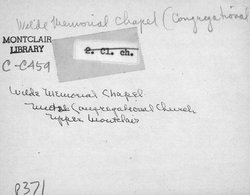 Wilde Memorial Chapel (Congregational
MONTCLAIR
LIBRARY
C-C459
2. Cl. ch.
Wilde Memorial Chapel
Congregational Church
Upper Montclair
p371